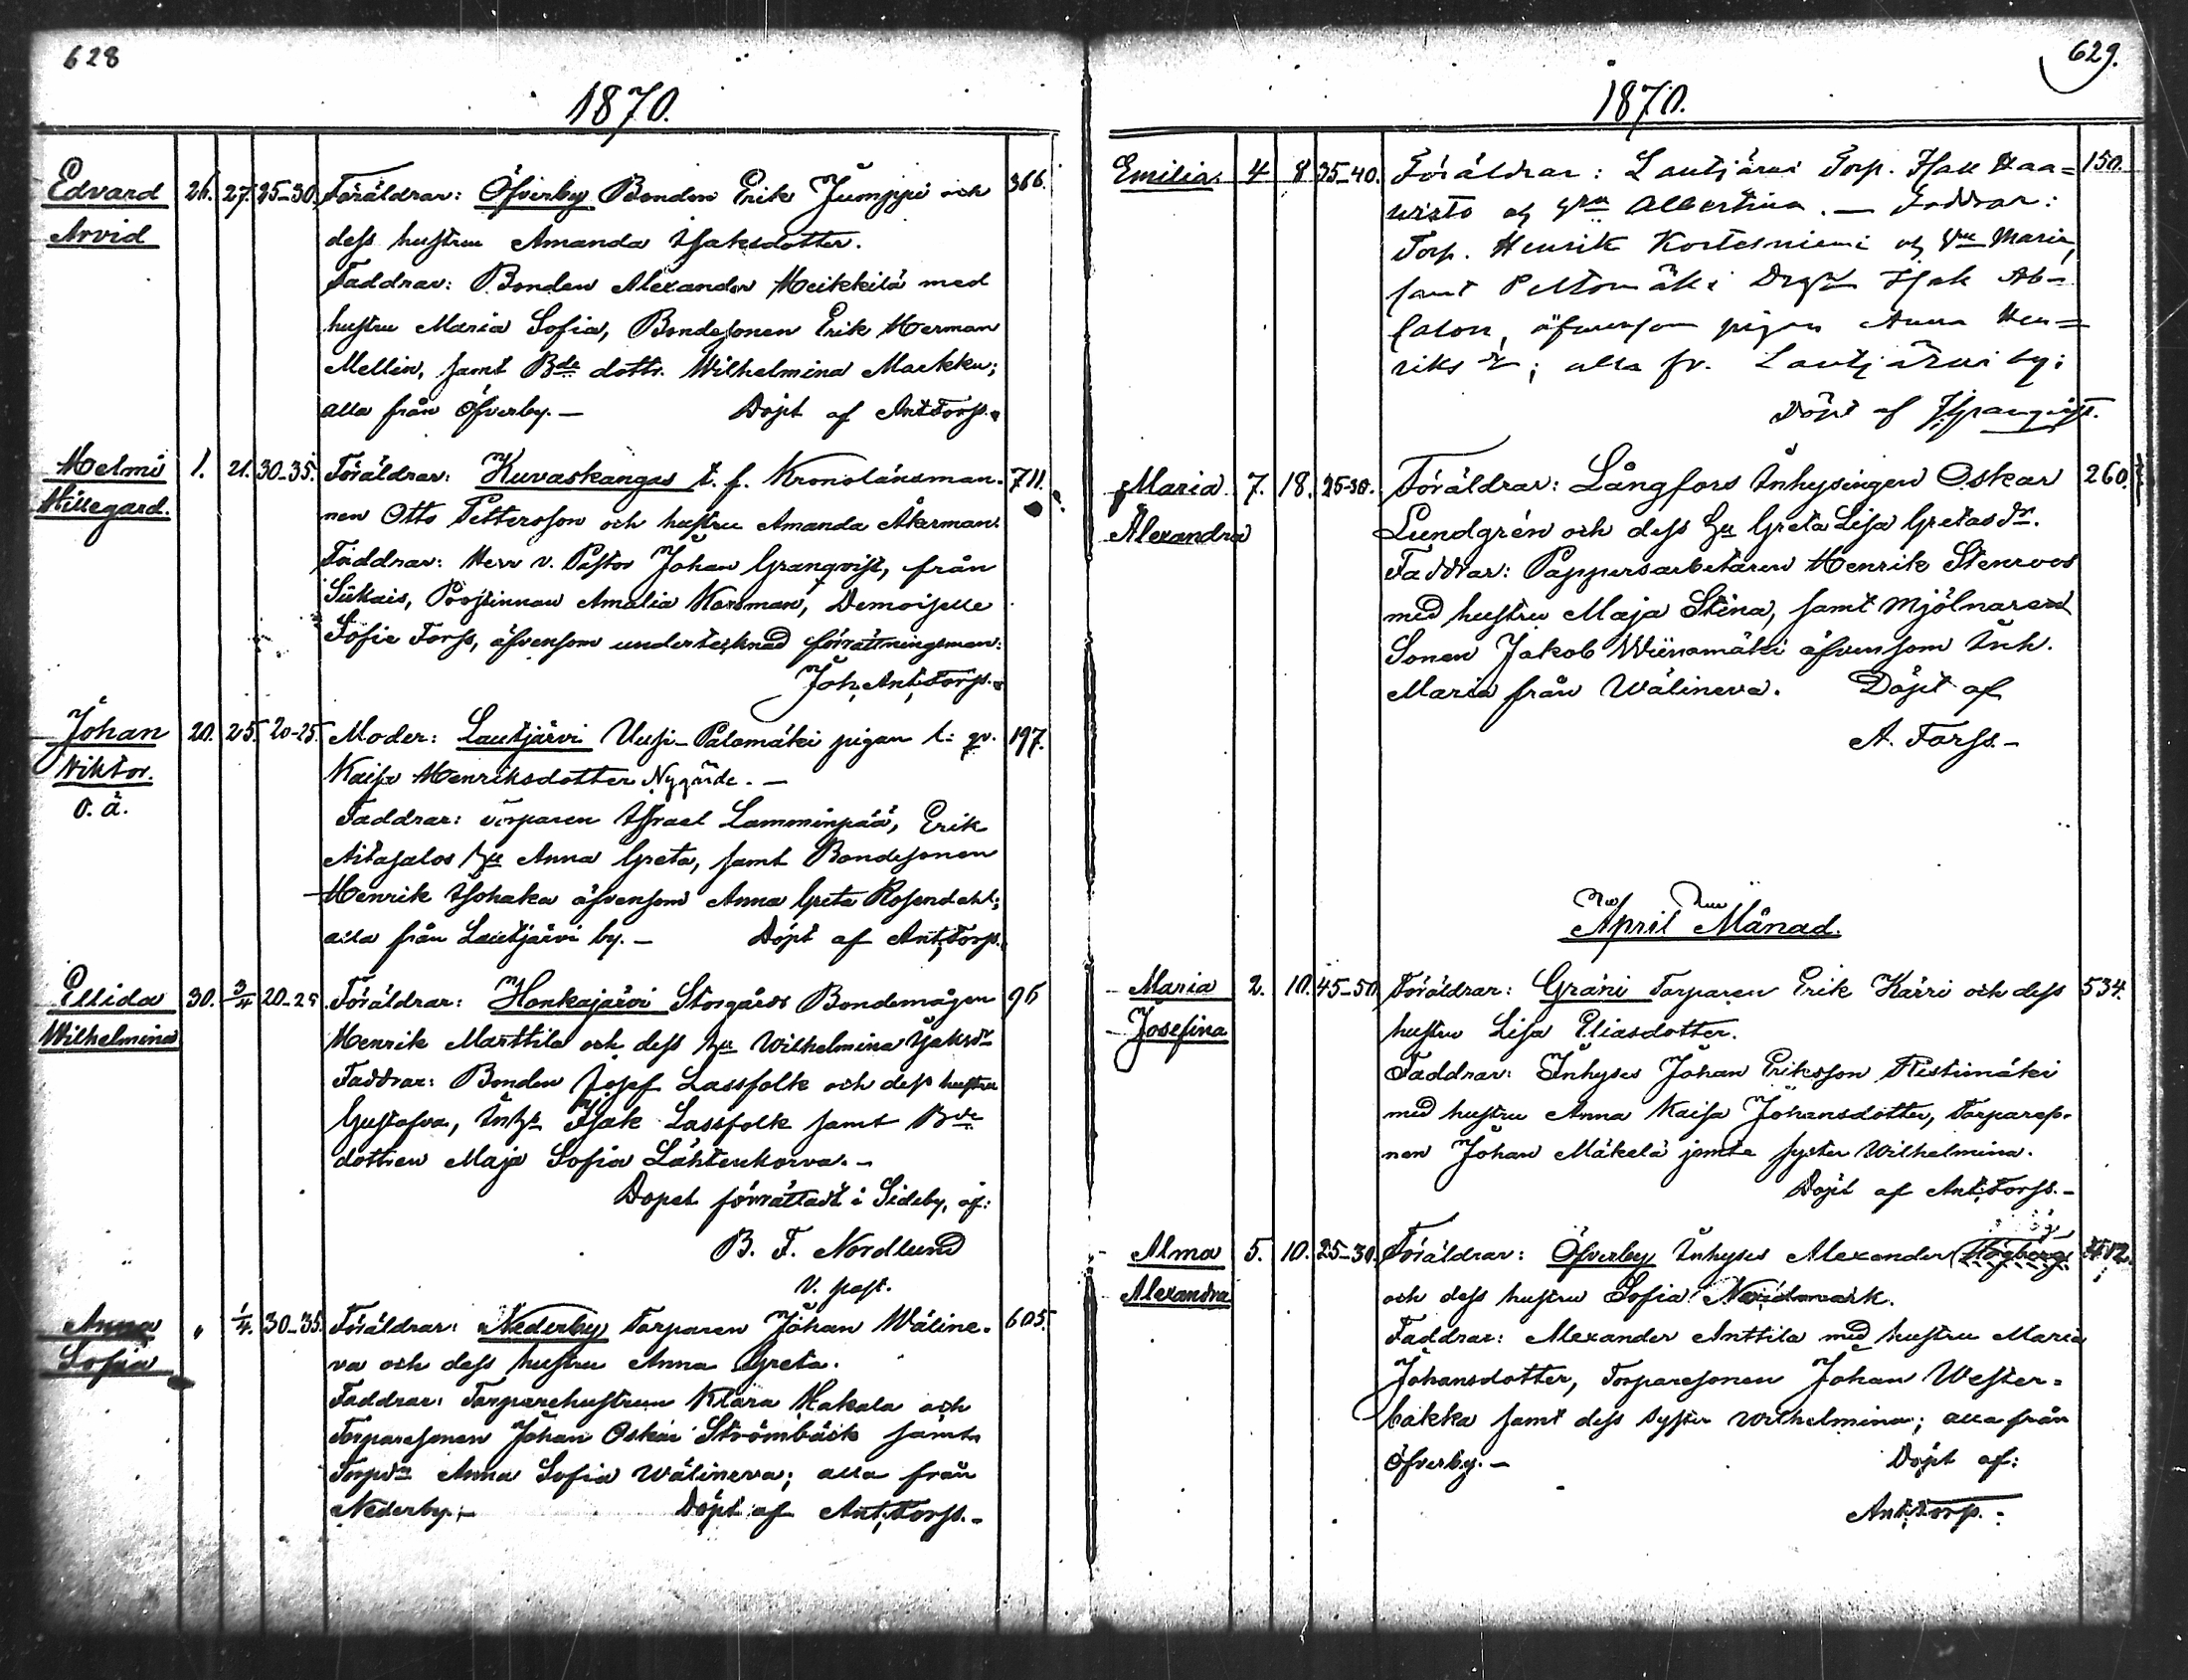 628
1870.
Edvard 26. 27. 25-30. Föräldrar: Öfverby Bonden Erik Jumppi och 366.
Arvid dess hustru Amanda Isaksdotter.
Faddrar: Bonden Alexander Heikkilä med
hustru Maria Sofia, Bondesonen Erik Herman
Mellin, samt Bde dottr. Wilhelmina Markku;
alla från Öfverby. — Döpt af Ant. Forss.
Helmi 1. 21. 30-35. Föräldrar: Kuvaskangas t. f. Kronolänsman- 711.
Hillegard. nen Otto Pettersson och hustru Amanda Åkerman.
Faddrar: Herr v. Pastor Johan Granqvist, från
Siikais, Prostinnan Amalia Forsman, Demoiselle
Sofie Forss, äfvensom undertecknad förrättningsman:
Joh. Ant. Forss.
Johan 20. 25. 20-25. Moder: Lautjärvi Uusi-Palomäki pigan l: qv. 197.
Wiktor. Kaisa Henriksdotter Nygårde. —
o. ä. Faddrar: Torparen Israel Lamminpää, Erik
Aitasalos hu Anna Greta, samt Bondesonen
Henrik Isohaka äfvensom Anna Greta Rosendahl;
alla från Lautjärvi by. — Döpt af Ant. Forss.
Ellida 30. 3/4 20-25. Föräldrar: Honkajärvi Storgårds Bondemågen 96
Wilhelmina Henrik Marttila och dess hu Wilhelmina Isaksdr
Faddrar: Bonden Josef Lassfolk och dess hustru
Gustafva, Isak Lassfolk samt Bde
dottren Maja Sofia Lähtenkorva. —
Dopet förrättadt i Sideby, af:
B. F. Nordlund
v. past.
Anna " 1/4. 30-35. Föräldrar: Nederby Torparen Johan Wäline- 605.
Sofia va och dess hustru Anna Greta.
Faddrar: Torparehustrun Klara Hakala och
Torparesonen Johan Oskar Strömbäck samt
Torpdr Anna Sofia Wälineva; alla från
Nederby. — Döpt af Ant. Forss. —
629.
1870.
Emilia. 4 8 35-40. Föräldrar: Lautjärvi Torp. Isak Haa= 150.
visto o Albertina. — Faddrar:
Torp. Henrik Kortesniemi o Maria,
samt Peltomäki Isak Ab-
, äfvensom pigan Anna Hen=
riks dr; alla fr. Lautjärvi by;
Döpt af JGranqvist.
Maria 7. 18. 25-30. Föräldrar: Långfors Inhysingen Oskar 260.
Alexandra Lundgrén och dess hu Greta Lisa Gretasdr.
Faddrar: Pappersarbetaren Henrik Stenroos
med hustru Maja Stina, samt Mjölnaren
Sonen Jakob Wiinamäki äfvensom Inh.
Maria från Wälineva. Döpt af
A. Forss. —
April Månad.
Maria 2. 10. 45-50. Föräldrar: Gräni Torparen Erik Kärri och dess 534.
Josefina hustru Lisa Eliasdotter.
Faddrar: Inhyses Johan Eriksson Ristimäki
med hustru Anna Kaisa Johansdotter, Torpareso-
nen Johan Mäkelä jemte syster Wilhelmina.
Döpt af Ant. Forss. —
Alma 5. 10. 25-30. Föräldrar: Öfverby Inhyses Alexander Högberg
Alexandra och dess hustru Sofia Nordmark.
Faddrar: Alexander Anttila med hustru Maria
Johansdotter, Torparesonen Johan Wester-
backa samt dess syster Wilhelmina; alla från
Öfverby. — Döpt af:
Ant. Forss. —